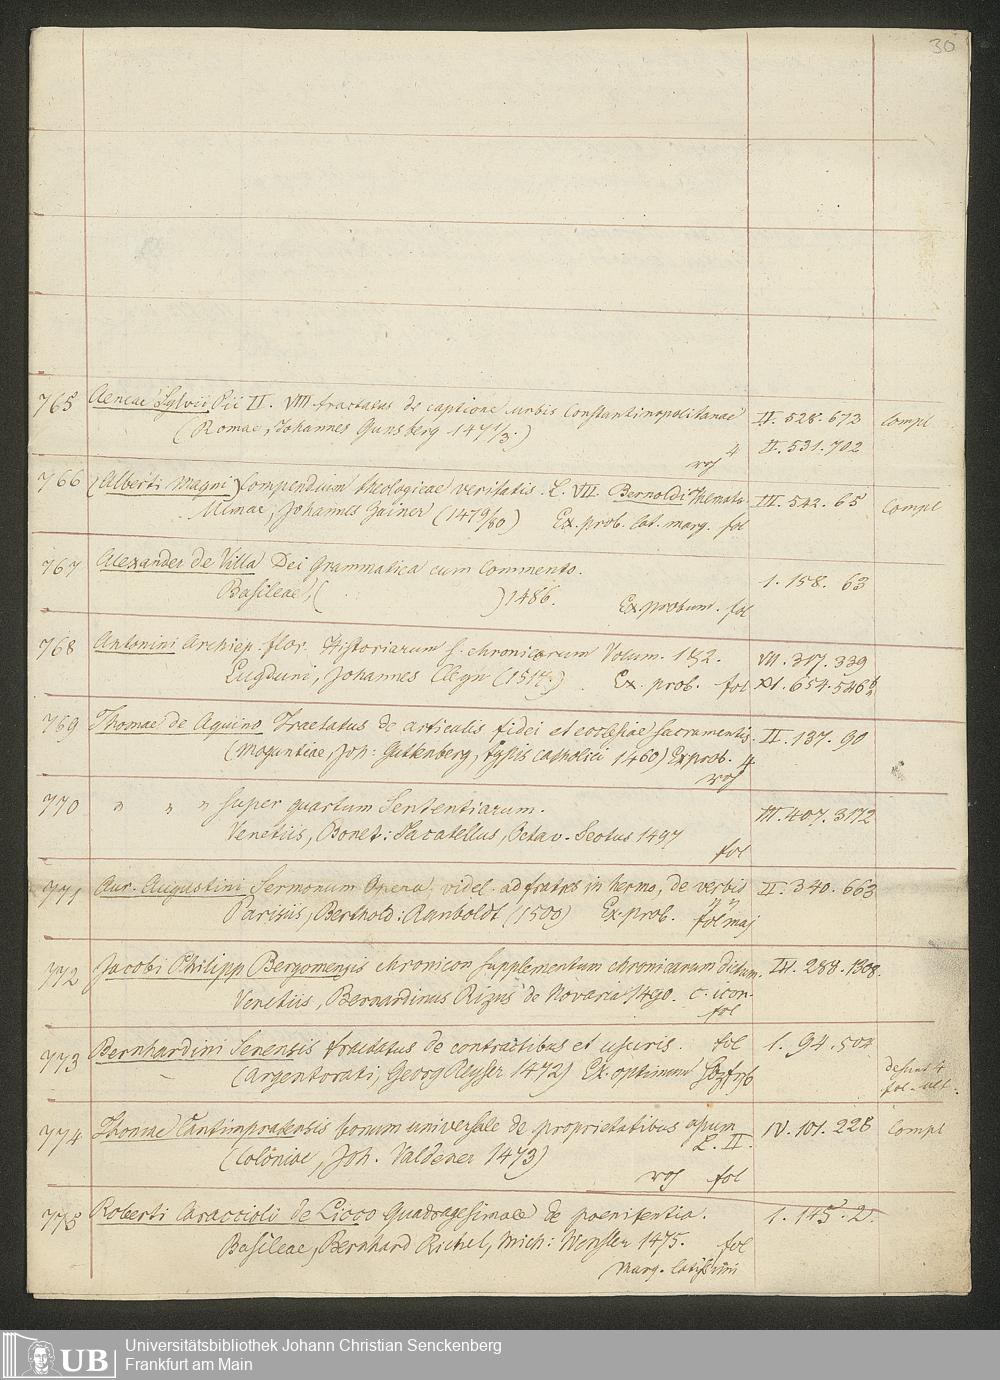 30
765 Aeneae Sylvii Pii II. VIII tractatus de captione urbis Constantinopolitanae II. 528. 673 Compl
(Romae, Johannes Gunsberg 147 1/3.) 4 II. 531. 702
766 (Alberti Magni) Compendium theologicae veritatis. L. VII. Bernoldi Themata III. 542. 65 Compl
Ulmae, Johannes Zainer (1479/80) Ex. prob. lat. marg. fol
767 Alexander de Villa Dei Grammatica cum Commento. 1. 158. 63
Basileae, ( ) 1486. Ex. probum. fol
768 Antonini Archiep. flor. Historiarum s. chronicorum Volum. 1 & 2. VII. 317. 339
Lugduni, Johannes Cleyn (1517.) Ex. prob. fol XI. 654. 546
769 Thomae de Aquino Tractatus de articulis fidei et ecclesiae sacramentis. II. 137. 90
(Moguntiae, Joh: Guttenberg, typis catholici 1460) Ex prob. 4
770 " " " super quartum Sententiarum. III. 407. 3172
Venetiis, Bonet: Locatellus, Octav. Scotus 1497
fol
771 Aur. Augustini Sermonum Opera, videl. ad fratres in hermo, de verbis II. 340. 663
Parisiis, Berthold: Rumboldt (1500) Ex. prob. fol maj
772 Jacobi Philipp Bergomensis chronicon supplementum chronicarum dictum. IV. 288. 1308.
Venetiis, Bernardinus Rizus de Novaria 1490. c. icon.
fol
773 Bernhardini Senensis tractatus de contractibus et usuris. fol 1. 94. 504
(Argentorati, Georg Reyser 1472) Ex. optimum desunt 4
fol. ult.
774 Thomae Cantimpratensis bonum universale de proprietatibus apum IV. 101. 226 Compl
L. II.
(Coloniae, Joh. Valdener 1473)
fol
775 Roberti Caraccioli de Licco Quadragesimale de poenitentia. 1. 145. 2.
Basileae, Bernhard Richel, Mich: Wensler 1475. fol
Marg. latissimi
UB
Universitätsbibliothek Johann Christian Senckenberg
Frankfurt am Main